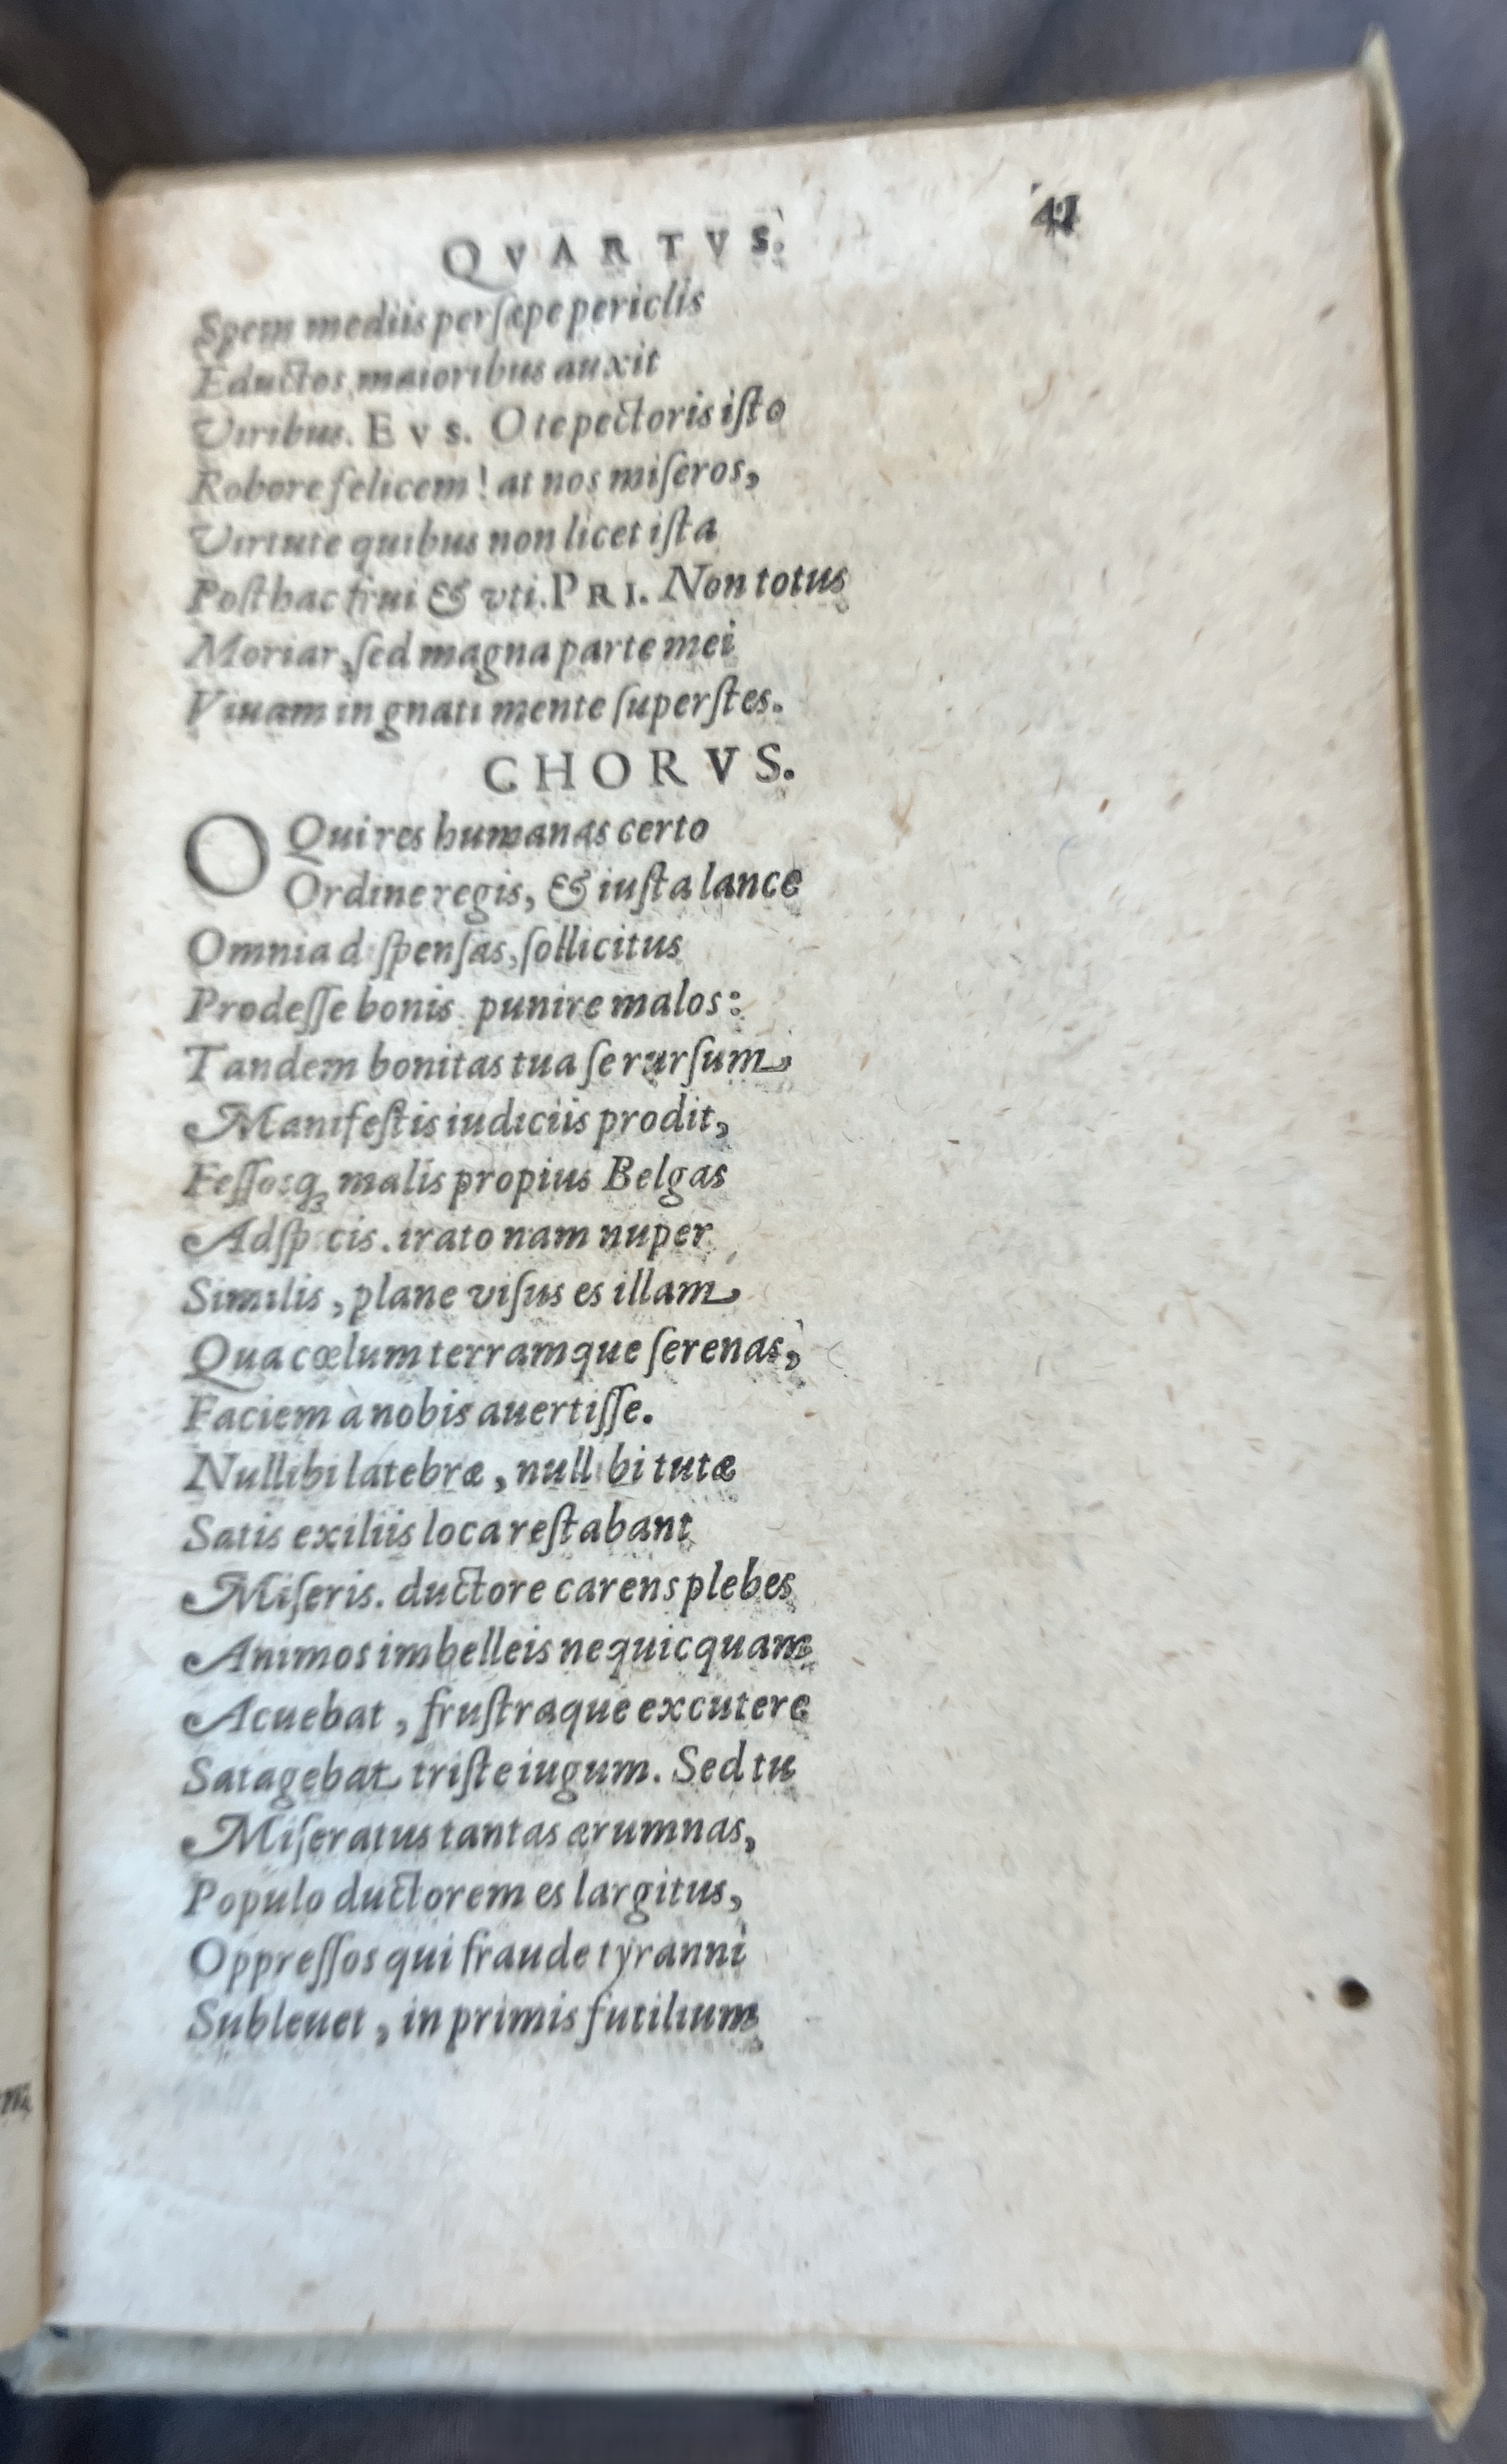 QVARTVS. 41
Spem mediis persæpe periclis
Eductos, maioribus auxit
Viribus. EVS. O te pectoris isto
Robore felicem! at nos miseros,
Virtute quibus non licet ista
Posthac frui & vti. PRI. Non totus
Moriar, sed magna parte mei
Viuam in gnati mente superstes.
CHORVS.
O Qui res humanas certo
Ordine regis, & iusta lance
Omnia dispensas, sollicitus
Prodesse bonis punire malos:
Tandem bonitas tua se rursum,
Manifestis iudiciis prodit,
Fessosq; malis propius Belgas
Adspicis. irato nam nuper
Similis, plane visus es illam
Qua cœlum terramque serenas,
Faciem à nobis auertisse.
Nullibi latebræ, nullibi tutæ
Satis exiliis loca restabant
Miseris. ductore carens plebes
Animos imbelleis nequicquam
Acuebat, frustraque excutere
Satagebat triste iugum. Sed tu
Miseratus tantas ærumnas,
Populo ductorem es largitus,
Oppressos qui fraude tyranni
Subleuet, in primis futilium